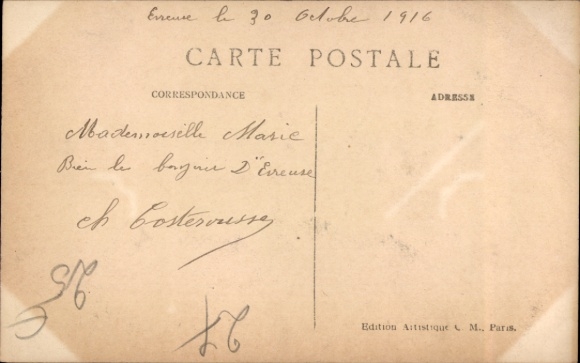 Evreuse le 30 Octobre 1916
CARTE POSTALE
CORRESPONDANCE
ADRESSE
Mademoiselle Marie
Bien le bonjour D'Evreuse
Ch Costerousse
Edition Artistique C. M., Paris.
25
27